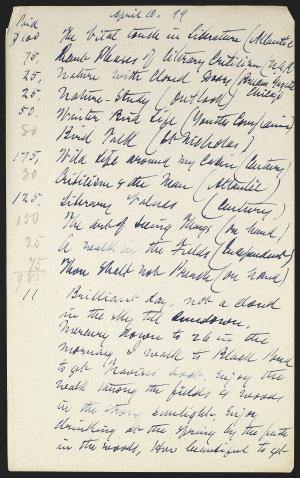 April 10. 99
Paid
$100 The Vital touch in Literature (Atlantic
75, Rand Phases of Literary Criticism,
25, Nature with Closed Doors,
25, Nature-Study (Outlook) Chicago
50. Winter Bird Life (Youths Com,
80 Bird Talk (St Nicholas)
175, Wild Life around my Cabin (Century)
80 Criticism & the Man (Atlantic)
125. Literary Values (Century,)
150 The art of Seeing Things (on hand)
25 A walk in the Fields (Independent)
75 Thou Shalt not Preach (on hand)
985
11 Brilliant day, not a cloud
in the sky till sundown.
Mercury down to 26 in the
morning. I walk to Black Pond
to get boat. Enjoy the
walk among the fields & woods
in the strong sunlight. Enjoy
drinking at the spring by the path
in the woods, How beautiful to get